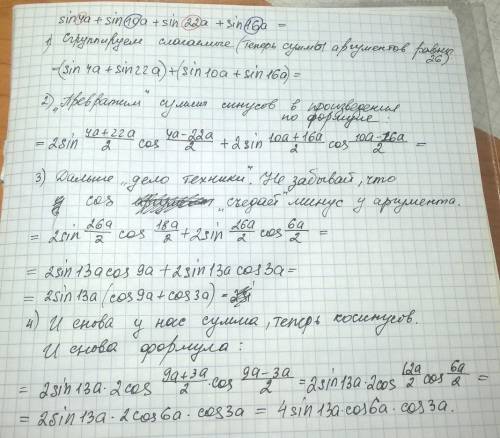 sin4a + sin10a + sin22a + sin16a =
1) Сгруппируем слагаемые (теперь суммы аргументов равны 26)
=(sin4a + sin22a) + (sin10a + sin16a) =
2) "Превратим" суммы синусов в произведения
по формуле:
= 2sin (4a+22a)/2 cos (4a-22a)/2 + 2sin (10a+16a)/2 cos (10a-16a)/2 =
3) Дальше "дело техники". Не забывай, что
cos "съедает" минус у аргумента.
= 2sin 26a/2 cos 18a/2 + 2sin 26a/2 cos 6a/2 =
= 2sin13a cos9a + 2sin13a cos3a =
= 2sin13a (cos9a + cos3a) =
4) И снова у нас сумма, теперь косинусов.
И снова формула:
= 2sin13a · 2cos (9a+3a)/2 · cos (9a-3a)/2 = 2sin13a · 2cos 12a/2 cos 6a/2 =
= 2sin13a · 2cos6a · cos3a = 4sin13a·cos6a·cos3a.